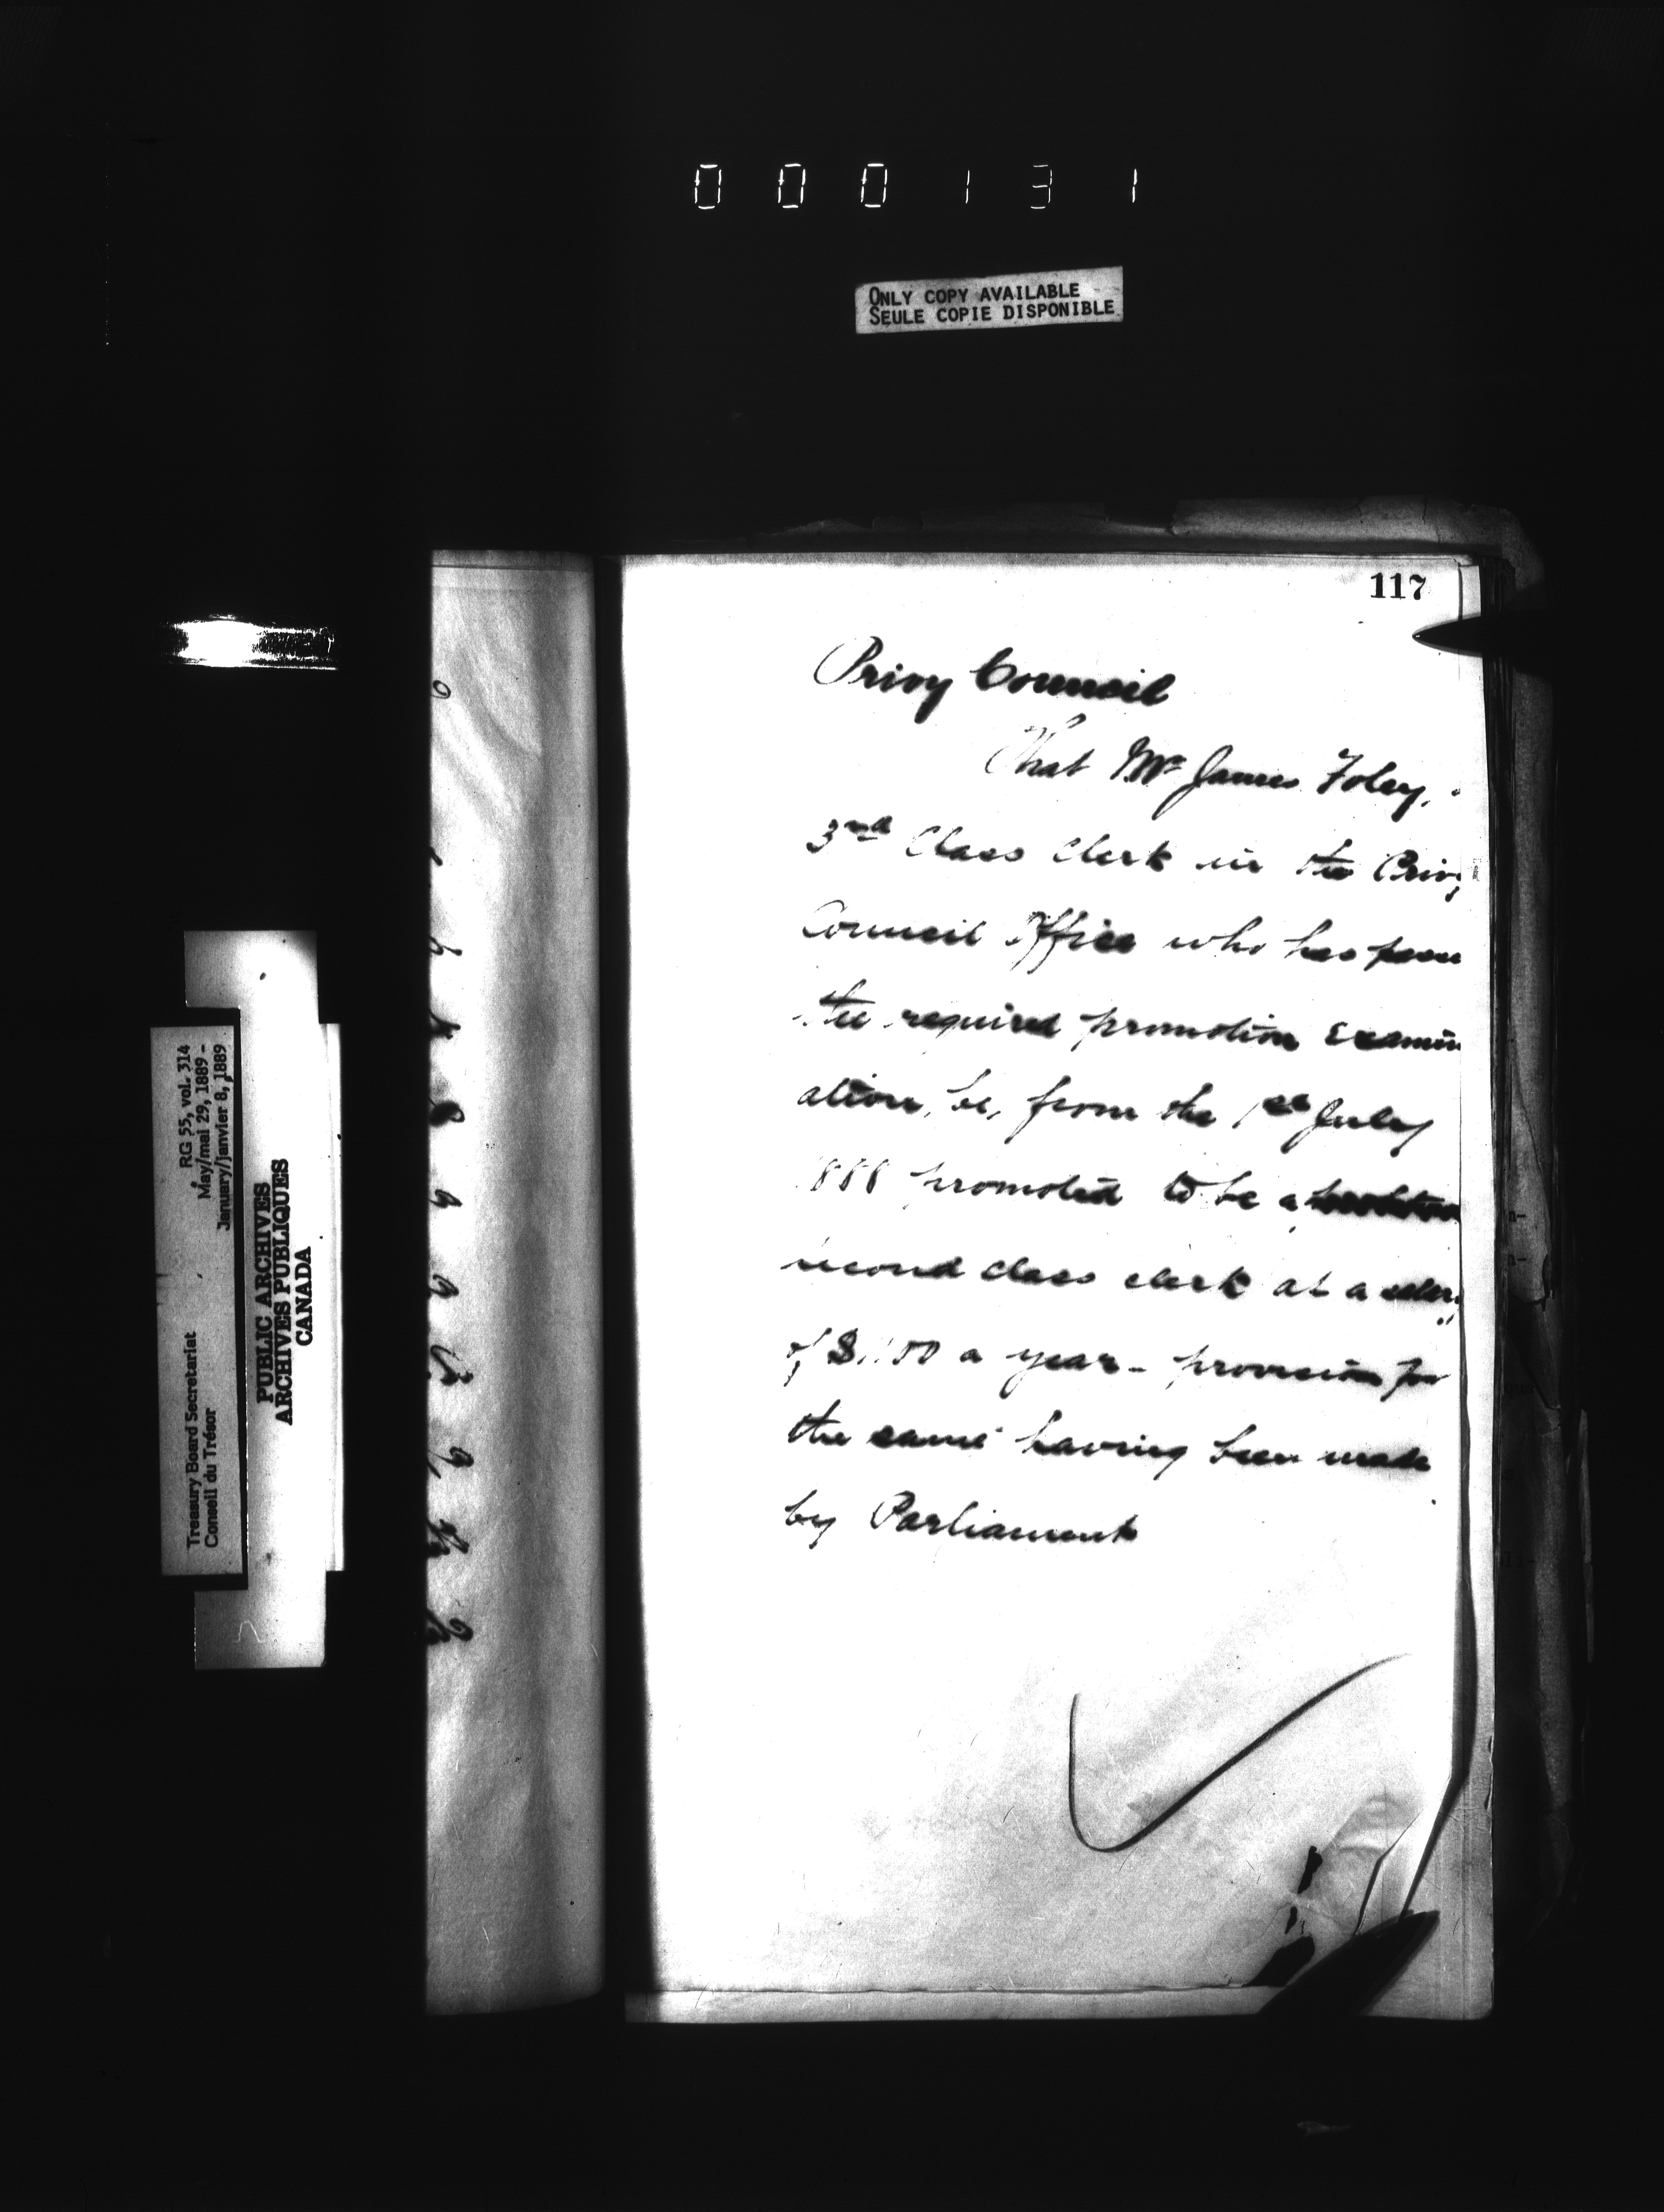 000131
ONLY COPY AVAILABLE
SEULE COPIE DISPONIBLE
117
Privy Council
That Mr James Foley,
3rd Class Clerk in the Privy
Council Office who has
the required promotion examin
ation, be, from the 1st July
1888 promoted to be a
second class clerk at a salary
of a year - provision for
the same having been made
by Parliament
RG 55, vol. 314
May/mai 29, 1889 -
January/janvier 8, 1889
Treasury Board Secretariat
Conseil du Trésor
PUBLIC ARCHIVES
ARCHIVES PUBLIQUES
CANADA